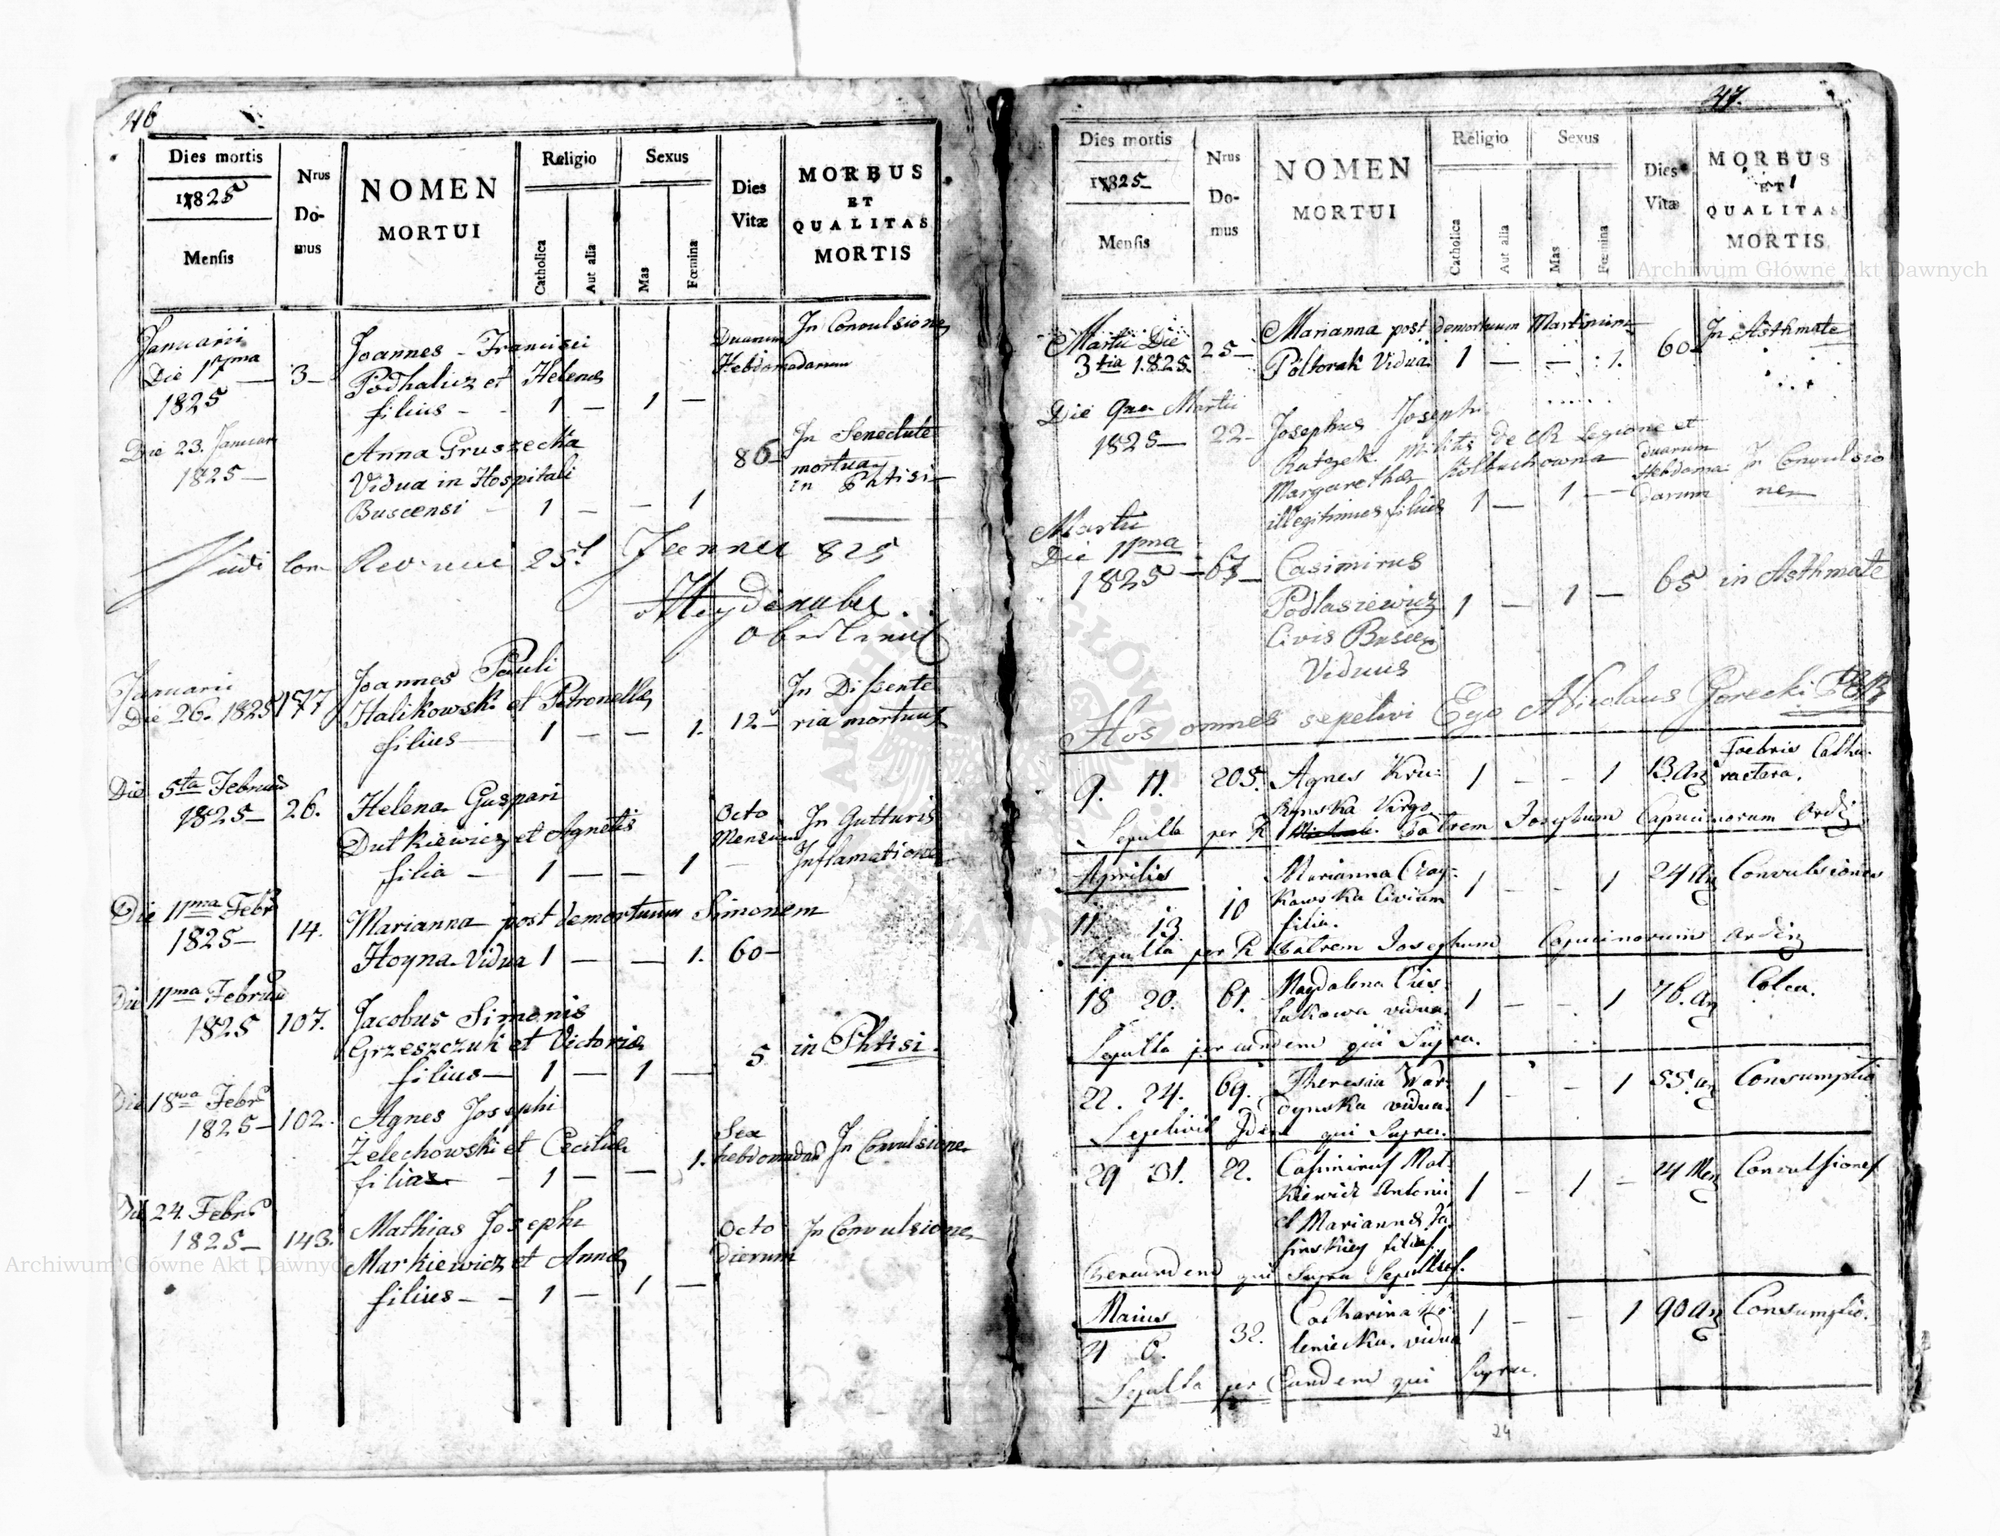 46
Dies mortis
1825
Mensis
Nrus
Do-
mus
NOMEN
MORTUI
Religio
Catholica
Aut alia
Sexus
Mas
Fœmina
Dies
Vitæ
MORBUS
ET
QUALITAS
MORTIS
Januarii
Die 17ma
1825
3
Joannes Francisci
Podhalicz et Helenæ
filius 1 — 1 —
Duarum
Hebdomadarum
In Convulsione
Die 23. Januari
1825 —
Anna Gruszecka
Vidua in Hospitali
Buscensi 1 — — 1
86
In Senectute
mortua
in Phtisi
Vidi 25t 825
Januarii
Die 26. 1825 177
Joannes Pauli
Halikowski et Petronellæ
filius 1 — — 1.
12
In Dissente
ria mortuus
Die 5ta Februarii
1825 — 26.
Helena Gaspari
Dutkiewicz et Agnetis
filia — 1 — — 1
Octo
Mensium
In Gutturis
Inflamatione
Die 11ma Febr
1825 — 14.
Marianna post demortuum Simonem
Hoyna Vidua 1 — — 1. 60 —
Die 11ma Februarii
1825 107.
Jacobus Simonis
Grzeszczuk et Victoriæ
filius — 1 — 1 —
5
in Phtisi
Die 18va Febr
1825 — 102.
Agnes Josephi
Zelechowski et Ceciliæ
filia 1 — — 1.
Sex
hebdomadar
In Convulsione
Die 24 Febr
1825 — 143.
Mathias Josephi
Markiewicz et Annæ
filius — 1 — 1 —
Octo
dierum
In Convulsione
47.
Dies mortis
1825
Mensis
Nrus
Do-
mus
NOMEN
MORTUI
Religio
Catholica
Aut alia
Sexus
Mas
Fœmina
Dies
Vitæ
MORBUS
ET
QUALITAS
MORTIS
Martii Die
3tia 1825. 25 —
Marianna post demortuum Martinum
Pòltorak Vidua 1 — — 1.
60
In Asthmate
Die 9na Martii
1825 — 22 —
Josephus Josephi
Ratzek Militis de Legione et
Margarethæ
illegitimus filius 1 — 1 —
Duarum
Hebdoma
darum
In Convulsio
ne
Martii
Die 11ma
1825 — 67 —
Casimirus
Podlasiewicz 1 — 1 —
Civis Buscen
Viduus
65
in Asthmate
Hos omnes sepelivi Ego Nicolaus Gorecki
9. 11. 205.
Agnes Kru-
Virgo
1 — — 1
13 an
Foebris Catha-
Sepulta per R Patrem Josephum Capucinorum Ordin
Aprilis
11 13 10
Marianna Czay-
kowska Civium
filia.
1 — — 1
24 an
Convulsiones
Sepulta per R Patrem Josephum Capucinorum Ordin
18 20. 61.
Magdalena Cies-
lakowa vidua.
1 — — 1
76. an
Colca.
Sepulta per eundem qui Supra.
22. 24. 69.
Theresia War-
dynska vidua.
1 — — 1
55. an
Consumptio
Sepelivit Idem qui Supra.
29 31. 22.
Casimirus Mat-
kiewicz Antonii
et Mariannæ Ja-
sinskiey filius.
1 — 1 —
24 Men
Convulsiones
Per eundem qui Supra Sepultus.
Maius
4 6. 32.
Catharina Ko-
leniecka. vidua
1 — — 1
90 an
Consumptio.
Sepulta per Eundem qui Supra.
24
Archiwum Główne Akt Dawnych
Archiwum Główne Akt Dawnych